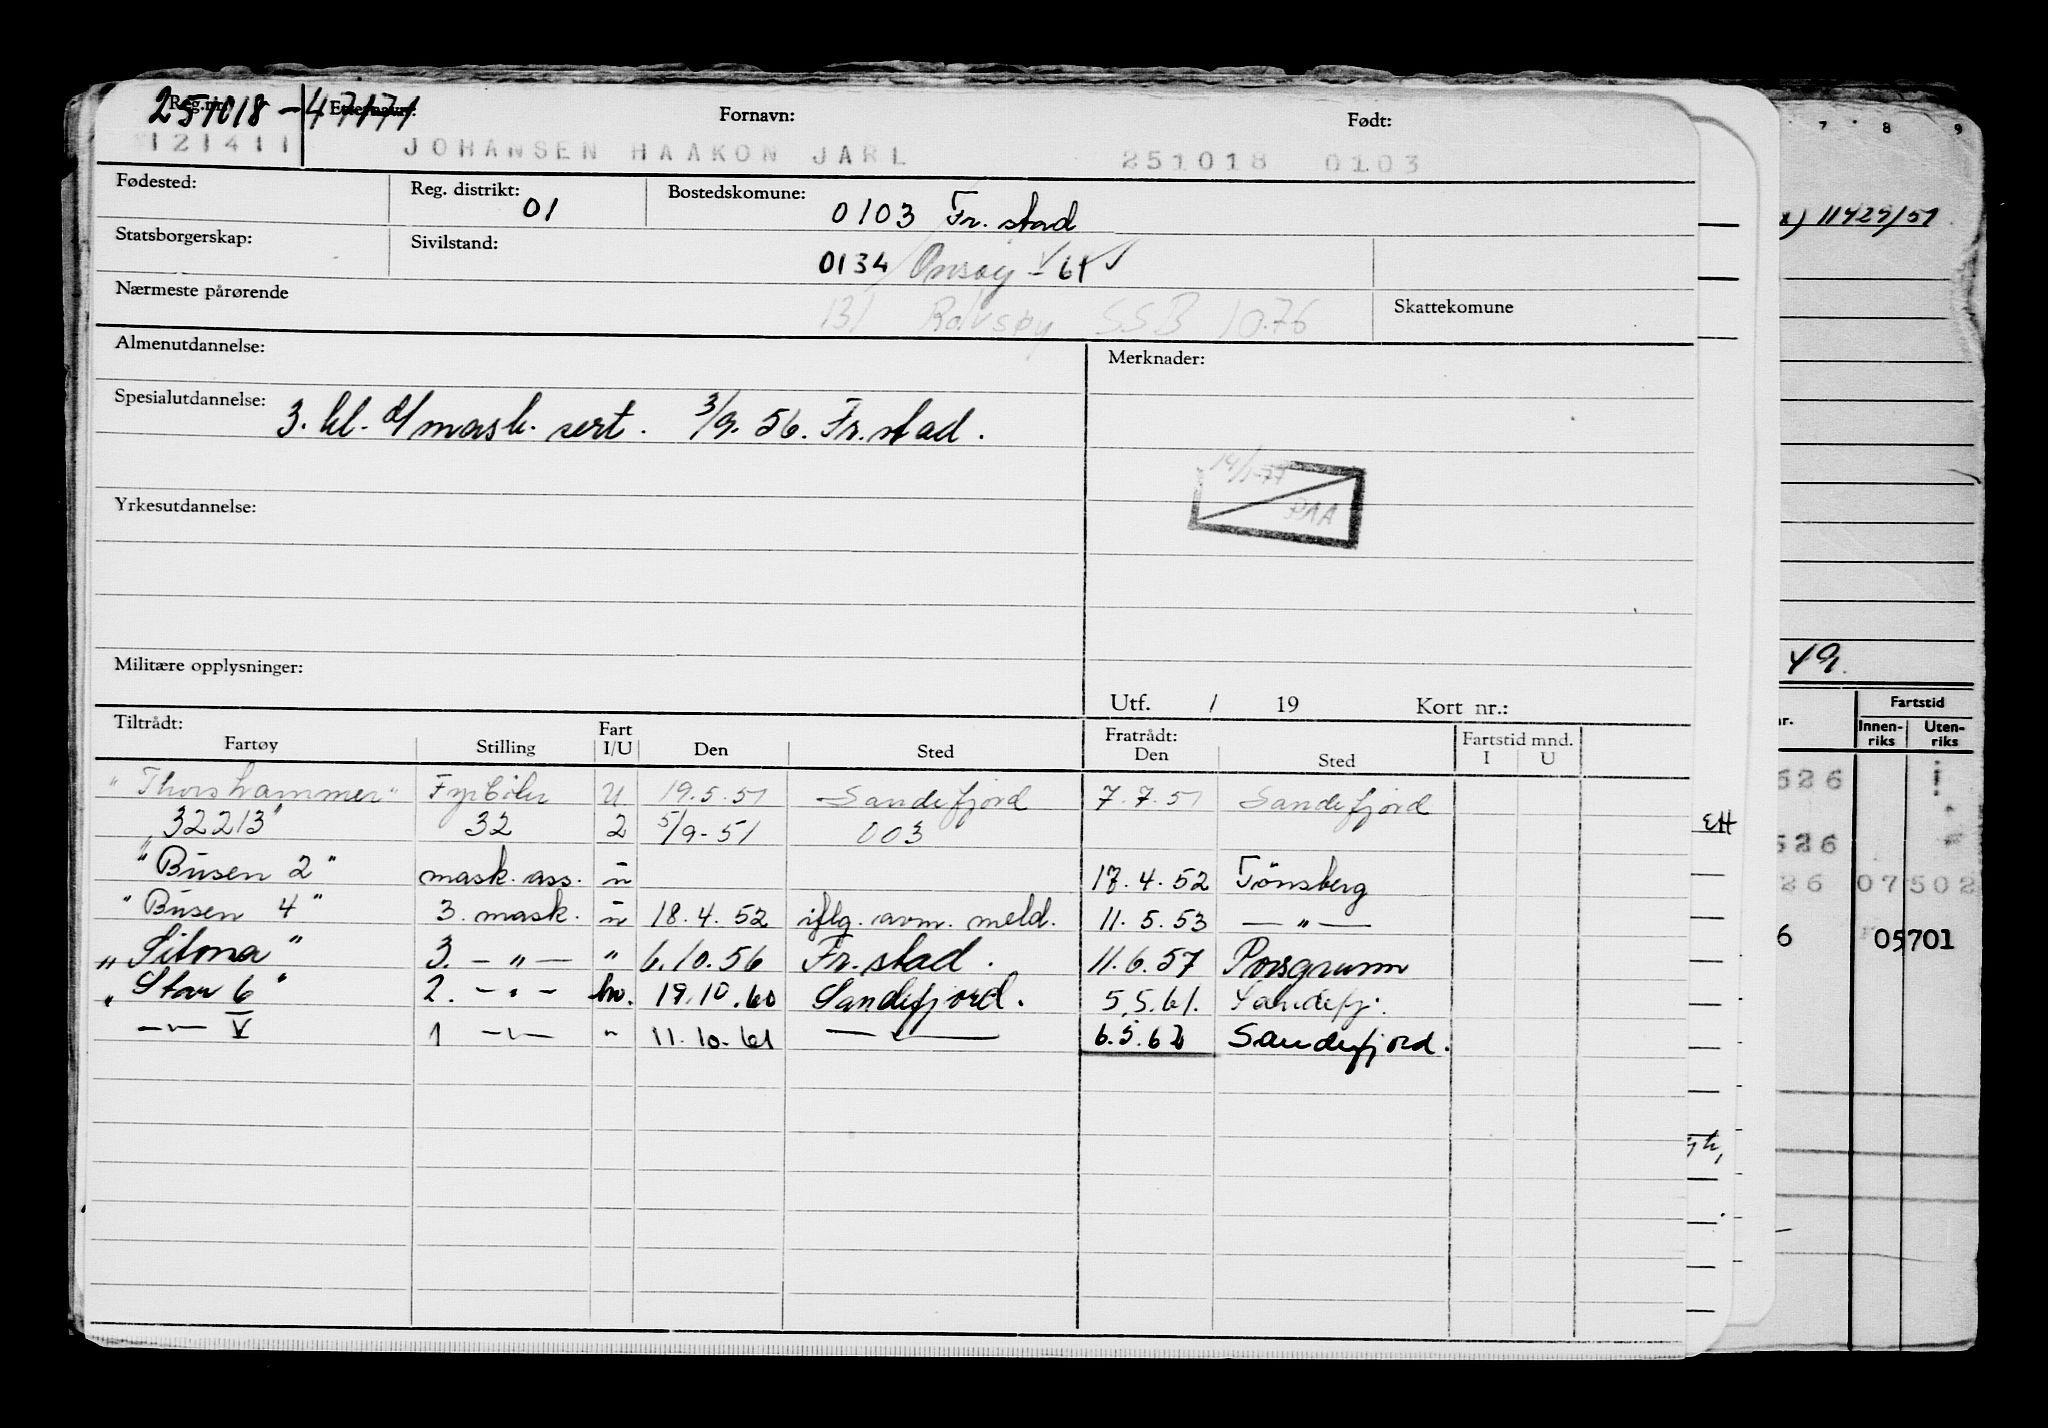 Reg.nr. Etternavn: Fornavn: Født:
251018 - 47171
121411 JOHANSEN HAAKON JARL 251018 0103
Fødested: Reg. distrikt: 01 Bostedskomune: 0103 Fr. stad
Statsborgerskap: Sivilstand: 0134 Onsøy - 64
Nærmeste pårørende 131 Rolvsøy SSB 10.76 Skattekomune
Almenutdannelse: Merknader:
Spesialutdannelse: 3. kl. d/mask. sert. 3/9. 56. Fr.stad.
14/1-77
PAA
Yrkesutdannelse:
Militære opplysninger:
Utf. / 19 Kort nr.:
Tiltrådt: Fratrådt:
Fartøy Stilling Fart I/U Den Sted Den Sted Fartstid mnd. I U
"Thorshammer" Fyrbøter U 19.5.51 Sandefjord 7.7.51 Sandefjord
"32213" 32 2 5/9-51 003
"Busen 2" mask. ass. u 17.4.52 Tønsberg
"Busen 4" 3. mask. u 18.4.52 iflg. avm. meld. 11.5.53 — " —
"Sitona" 3. — " — " 6.10.56 Fr.stad. 11.6.57 Porsgrunn
"Star 6" 2. - " - hv. 19.10.60 Sandefjord. 5.5.61. Sandefj.
— " — V 1 — " — " 11.10.61 — " — 6.5.62 Sandefjord.
7 8 9
11427/51
49.
nr. Fartstid
Innen-riks Uten-riks
626
526
26 07502
6 05701
EH